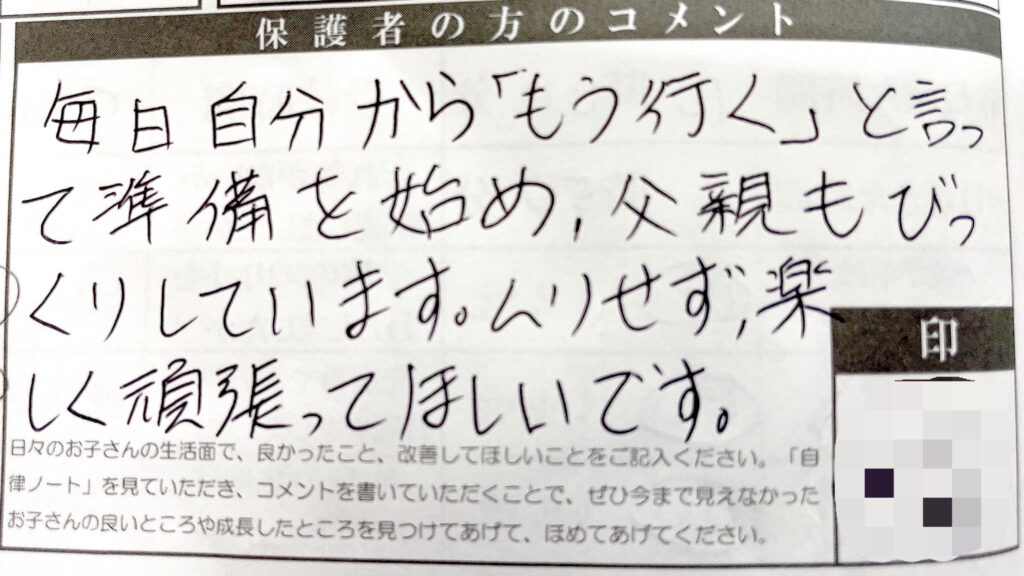 保護者の方のコメント
毎日自分から「もう行く」と言っ
て準備を始め,父親もびっ
くりしています。ムリせず,楽
しく頑張ってほしいです。
印
日々のお子さんの生活面で、良かったこと、改善してほしいことをご記入ください。「自
律ノート」を見ていただき、コメントを書いていただくことで、ぜひ今まで見えなかった
お子さんの良いところや成長したところを見つけてあげて、ほめてあげてください。